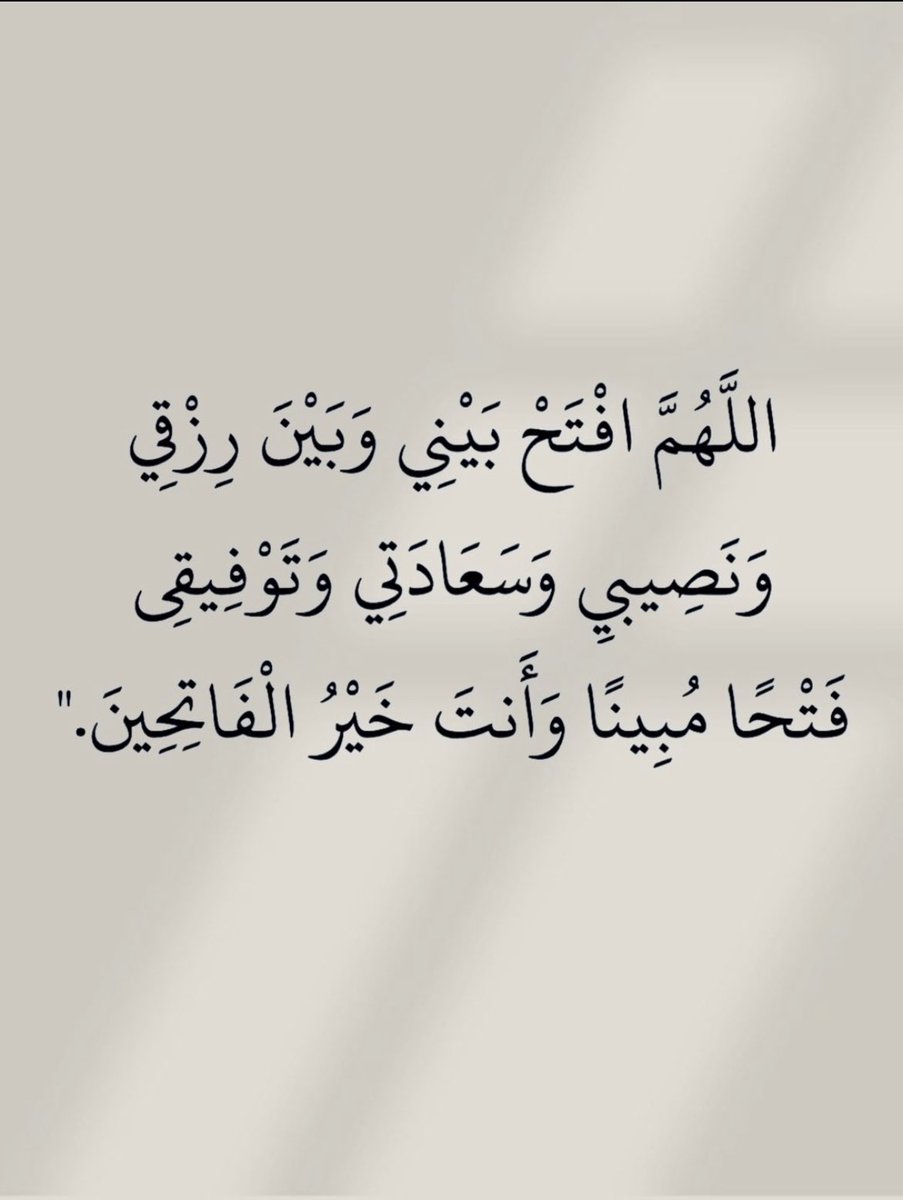 اللَّهُمَّ افْتَحْ بَيْنِي وَبَيْنَ رِزْقِي
وَنَصِيبيِ وَسَعَادَتِي وَتَوْفِيقِى
فَتْحًا مُبِينًا وَأَنتَ خَيْرُ الْفَاتِحِينَ."